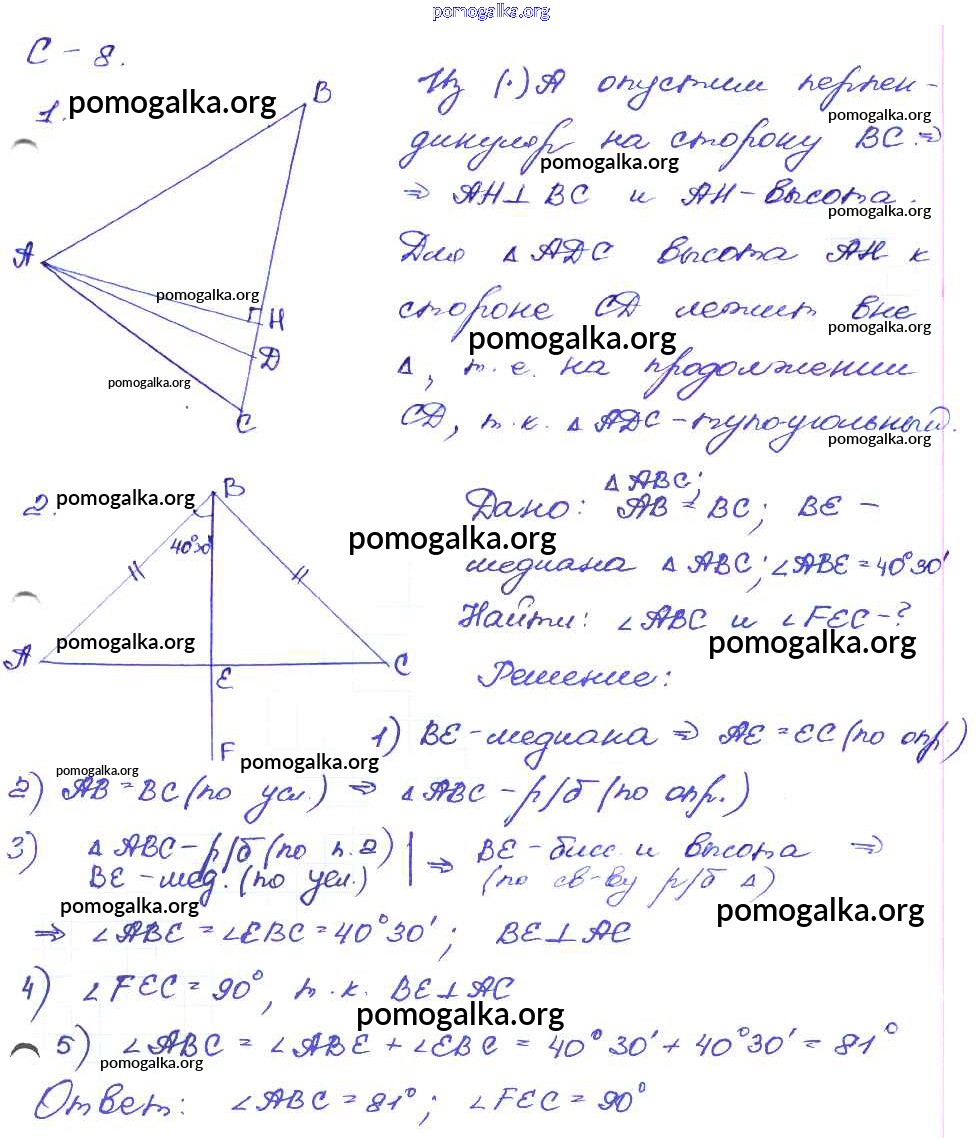 pomogalka.org
С – 8.
1. pomogalka.org
B
A
H
D
C
pomogalka.org
pomogalka.org
Из (·) A опустим перпен-
pomogalka.org
дикуляр на сторону BC. ⇒
pomogalka.org
⇒ AH ⊥ BC и AH – высота.
pomogalka.org
Для △ ADC высота AH к
стороне CD лежит вне
pomogalka.org
pomogalka.org
△, т. е. на продолжении
CD, т. к. △ ADC – тупоугольный.
pomogalka.org
2. pomogalka.org
B
40°30'
A
pomogalka.org
E
C
F
pomogalka.org
△ ABC;
Дано: AB = BC; BE –
pomogalka.org
медиана △ ABC; ∠ABE = 40°30'
Найти: ∠ABC и ∠FEC – ?
pomogalka.org
Решение:
1) BE – медиана ⇒ AE = EC (по опр.)
pomogalka.org
2) AB = BC (по усл.) ⇒ △ ABC – р/б (по опр.)
3) △ ABC – р/б (по п. 2) | ⇒ BE – бисс. и высота ⇒
BE – мед. (по усл.) (по св-ву р/б △)
pomogalka.org
pomogalka.org
⇒ ∠ABE = ∠EBC = 40°30'; BE ⊥ AC
4) ∠FEC = 90°, т. к. BE ⊥ AC
pomogalka.org
5) ∠ABC = ∠ABE + ∠EBC = 40°30' + 40°30' = 81°
pomogalka.org
Ответ: ∠ABC = 81°; ∠FEC = 90°